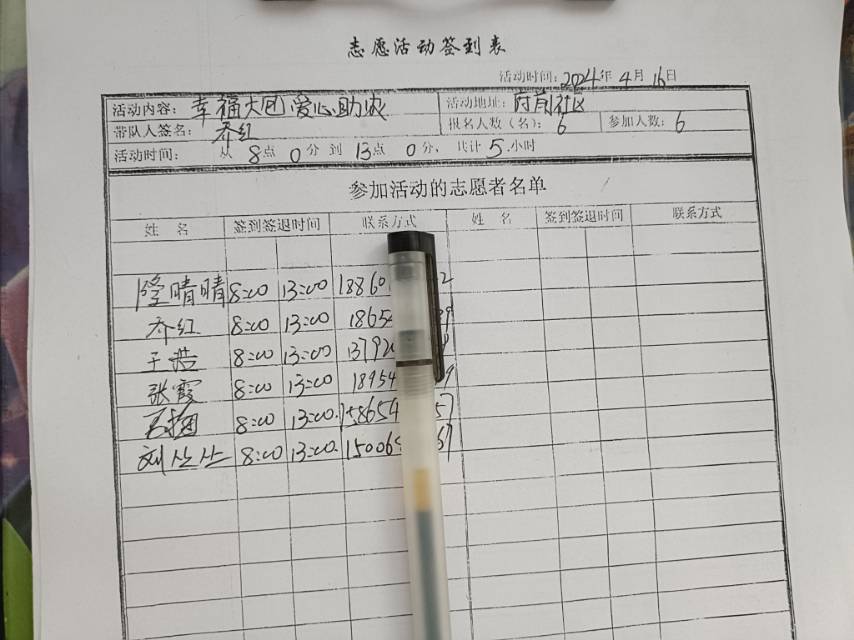 志愿活动签到表
活动时间：2024年4月16日
活动内容：幸福大团爱心助农 活动地址：府前社区
带队人签名：乔红 报名人数（名）：6 参加人数：6
活动时间： 从 8点 0分 到 13点 0分， 共计 5 小时
参加活动的志愿者名单
姓 名 签到签退时间 联系方式 姓 名 签到签退时间 联系方式
隆晴晴 8:00 13:00 18860 2
乔红 8:00 13:00 1865
于浩 8:00 13:00 1379
张霞 8:00 13:00 18954 9
8:00 13:00 158654 57
刘丛丛 8:00 13:00 15006 67